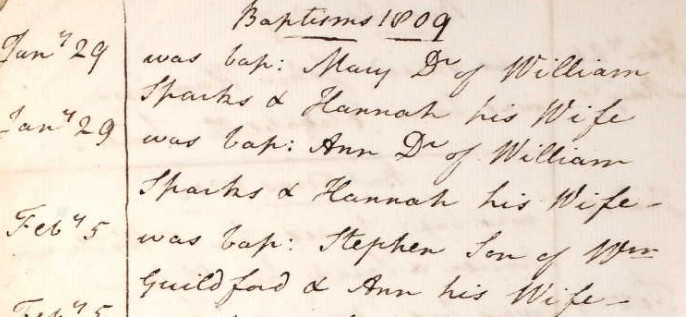 Baptisms 1809
Jan^y 29 was bap: Mary D^r of William
Sparks & Hannah his Wife
Jan^y 29 was bap: Ann D^r of William
Sparks & Hannah his Wife-
Feb^y 5 was bap: Stephen Son of W^m
Guildford & Ann his Wife-
Feb^y 5